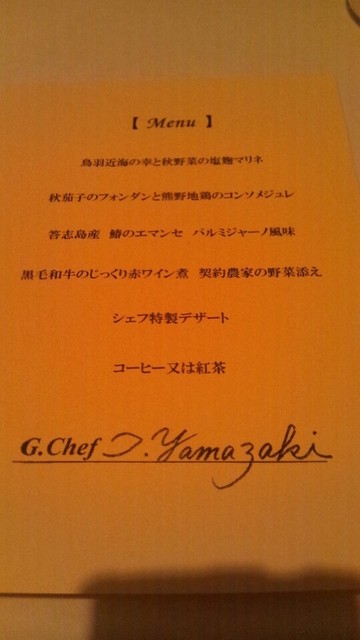 【 Menu 】
鳥羽近海の幸と秋野菜の塩麹マリネ
秋茄子のフォンダンと熊野地鶏のコンソメジュレ
答志島産 鰆のエマンセ パルミジャーノ風味
黒毛和牛のじっくり赤ワイン煮 契約農家の野菜添え
シェフ特製デザート
コーヒー又は紅茶
G.Chef J. Yamazaki